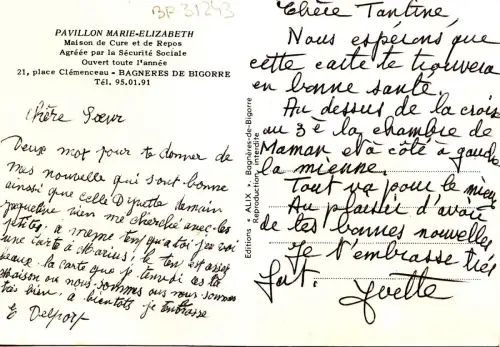 BF 31243
PAVILLON MARIE-ELIZABETH
Maison de Cure et de Repos
Agréée par la Sécurité Sociale
Ouvert toute l'année
21, place Clémenceau - BAGNERES DE BIGORRE
Tél. 95.01.91
Chère Sœur
Deux mot pour te donner de
mes nouvelle qui sont bonne
ainsi que celle D'yvette demain
jaqueline vien me cherché avec les
petites, a meme temp qua toi j'envoi
une carte à Marius, le ten est assez
beau. la carte que je t'envoi es la
Maison ou nous sommes ous nous sommes
très bien, a bientots je t'embrasse
E Delport
Editions « ALIX », Bagnères-de-Bigorre
Reproduction interdite
Chère Tantine,
Nous espérons que
cette carte te trouvera
en bonne santé.
Au dessus de la croix
au 3è la chambre de
Maman et à côté à gauche
la mienne.
Tout va pour le mieux
Au plaisir d'avoir
de tes bonnes nouvelles
Je t'embrasse très
fort. Yvette